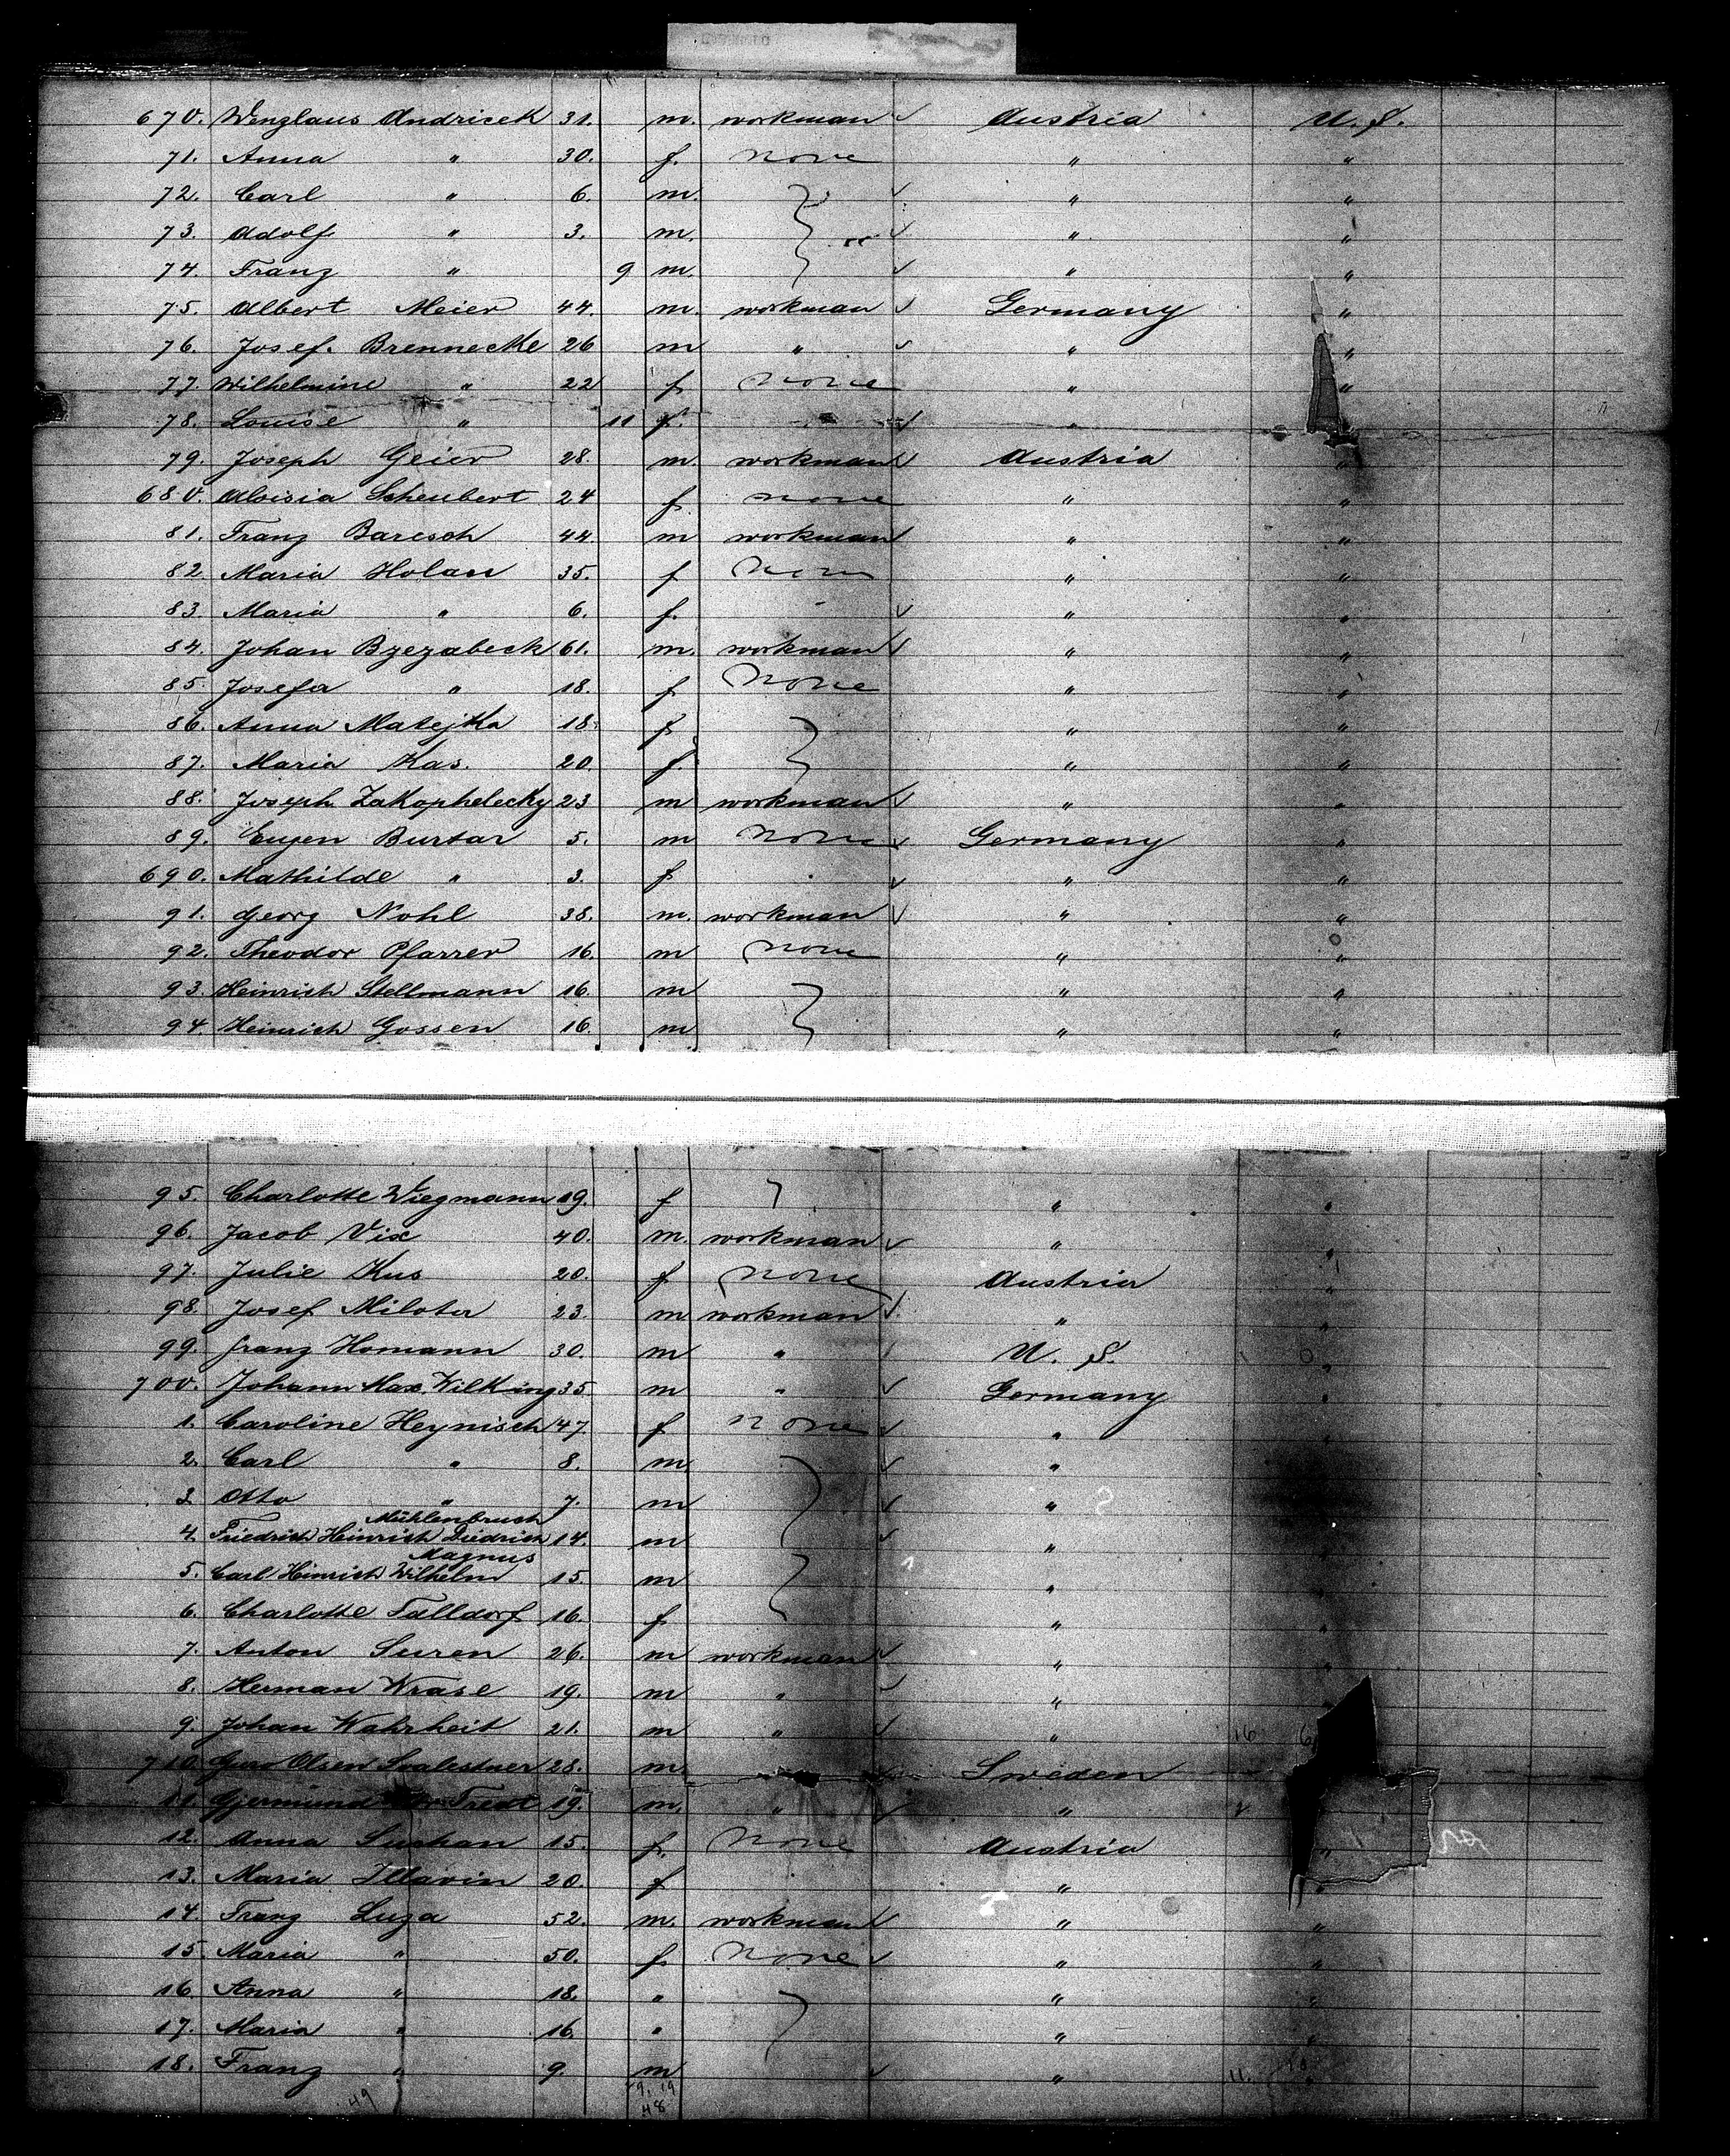 670. Wenzlaus Andricek 31. m. workman Austria U. S.
71. Anna " 30. f. none " "
72. Carl " 6. m. " "
73. Adolf " 3. m. " "
74. Franz " 9 m. " "
75. Albert Meier 44. m. workman Germany "
76. Josef. Brennecke 26 m " " "
77. Wilhelmine " 22 f none " "
78. Louise " 11 f. " "
79. Joseph Geier 28. m. workman Austria "
680. Aloisia Scheubert 24 f none " "
81. Franz Baresch 44. m workman " "
82. Maria Holan 35. f none " "
83. Maria " 6. f. " "
84. Johan Bzezabeck 61. m. workman " "
85. Josefa " 18. f none " "
86. Anna Matejka 18. f " "
87. Maria Kas. 20. f. " "
88. Joseph Zakophelecky 23 m workman " "
89. Eugen Burtar 5. m none Germany "
690. Mathilde " 3. f " "
91. Georg Nohl 38. m. workman " "
92. Theodor Pfarrer 16. m none " "
93. Heinrich Stellmann 16. m " "
94. Heinrich Gossen 16. m " "
95. Charlotte Wiegmann 19. f " "
96. Jacob Vix 40. m. workman " "
97. Julie Kus 20. f none Austria "
98. Josef Milota 23. m workman " "
99. Franz Homann 30. m " U. S. "
700. Johann Max. Wilking 35 m " Germany "
1. Caroline Heynisch 47. f none " "
2. Carl " 8. m " "
3 Otto " 7. m " "
Mühlenbruch
4. Friedrich Heinrich Diedrich 14. m " "
Magnus
5. Carl Heinrich Wilhelm 15. m " "
6. Charlotte Falldorf 16. f " "
7. Anton Suren 26. m workman " "
8. Herman Wrase 19. m " " "
9. Johan Wahrheit 21. m " " 16 6
710. Olsen 28. m Sweden
11. Gjermund Tredt 19. m. " "
12. Anna Suchan 15. f. none Austria "
13. Maria Illavin 20. f " "
14. Franz Luza 52. m. workman " "
15. Maria " 50. f none " "
16. Anna " 18. " " "
17. Maria " 16. " " "
18. Franz " 9. m " 11. 10 "
49 19
48